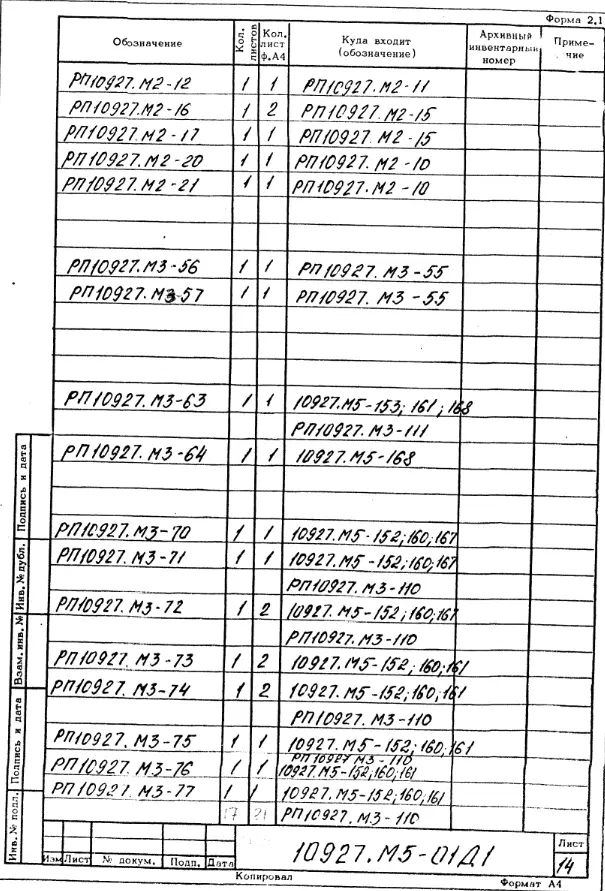 Форма 2.1
Обозначение Кол. листов Кол. лист ф.А4 Куда входит (обозначение) Архивный инвентарный номер Приме- чание
РП10927.М2-12 1 1 РП10927.М2-11
РП10927.М2-16 1 2 РП10927.М2-15
РП10927.М2-17 1 1 РП10927.М2-15
РП10927.М2-20 1 1 РП10927.М2-10
РП10927.М2-21 1 1 РП10927.М2-10
РП10927.М3-56 1 1 РП10927.М3-55
РП10927.М3-57 1 1 РП10927.М3-55
РП10927.М3-63 1 1 10927.М5-153; 161; 168
РП10927.М3-111
РП10927.М3-64 1 1 10927.М5-168
РП10927.М3-70 1 1 10927.М5-152;160;167
РП10927.М3-71 1 1 10927.М5-152;160;167
РП10927.М3-110
РП10927.М3-72 1 2 10927.М5-152;160;167
РП10927.М3-110
РП10927.М3-73 1 2 10927.М5-152;160;161
РП10927.М3-74 1 2 10927.М5-152;160;161
РП10927.М3-110
РП10927.М3-75 1 1 10927.М5-152;160;161
РП10927 М3-110
РП10927.М3-76 1 1 10927.М5-152;160;161
РП10927.М3-77 1 1 10927.М5-152;160;161
17 21 РП10927.М3-110
Подпись и дата
Инв. № дубл.
Взам. инв. №
Подпись и дата
Инв. № подл.
Изм Лист № докум. Подп. Дата
10927.М5-01Д1
Лист
14
Копировал
Формат А4